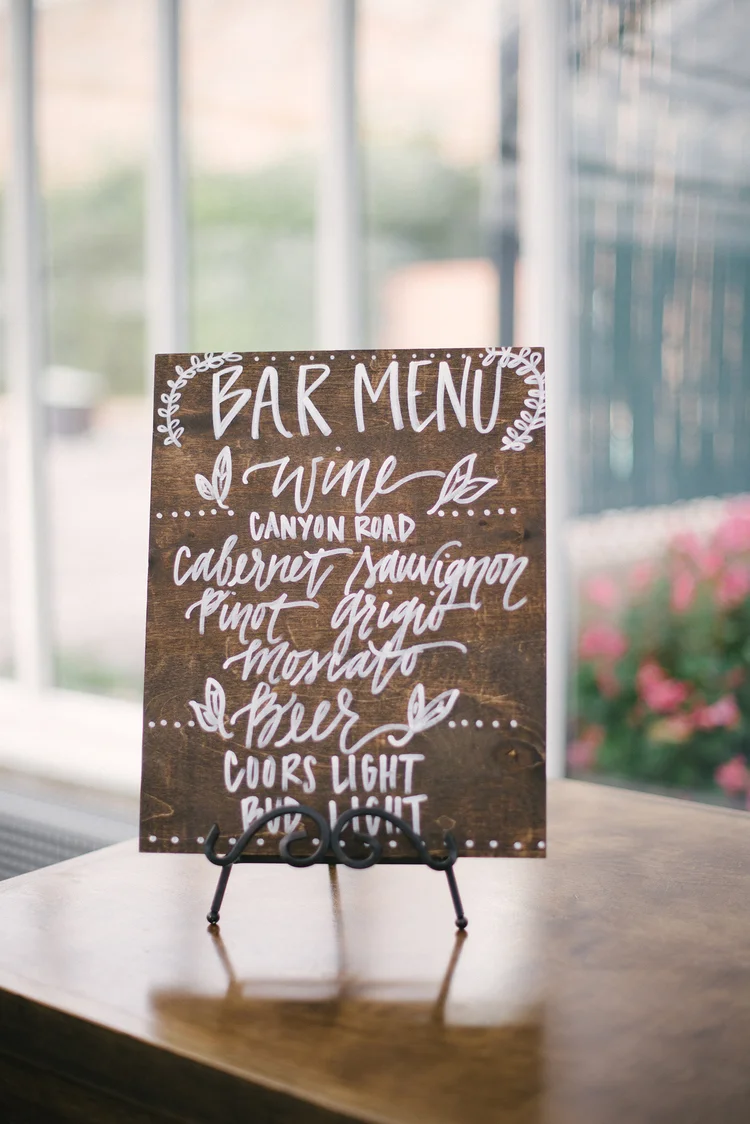 BAR MENU
wine
CANYON ROAD
Cabernet Sauvignon
Pinot Grigio
Moscato
Beer
COORS LIGHT
BUD LIGHT